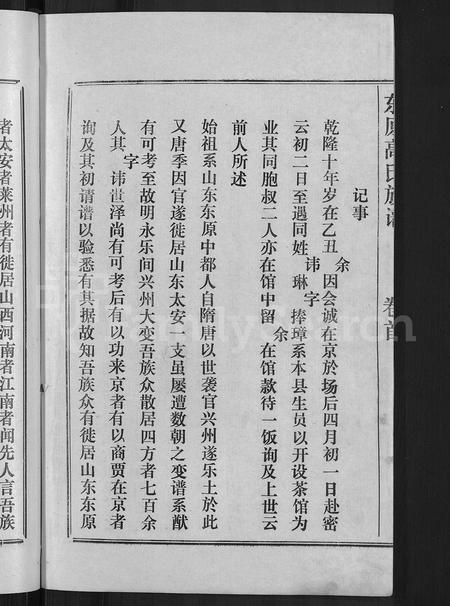 记事
乾隆十年岁在乙丑 余 因会诚在京於场后四月初一日赴密
云初二日至遇同姓 讳 琳 字 捧璋系本县生员以开设茶馆为
业其同胞叔二人亦在馆中留 余 在馆款待一饭询及上世云
前人所述
始祖系山东东原中都人自隋唐以世袭官兴州遂乐土於此
又唐季因官遂徙居山东太安一支虽屡遭数朝之变谱系猷
有可考至故明永乐间兴州大变吾族众散居四方者七百余
人其 字 讳世泽尚有可考后有以功来京者有以商贾在京者
询及其初请谱以验悉有其据故知吾族众有徙居山东东原
者太安者莱州者有徙居山西河南者江南者闻先人言吾族
卷首